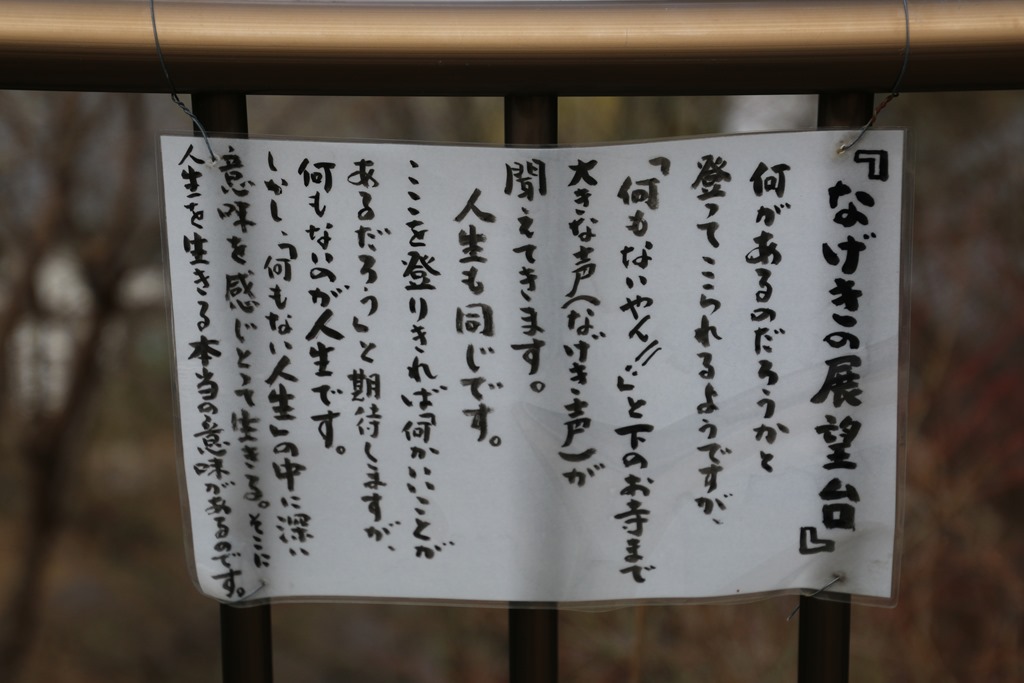 『なげきの展望台』
何があるのだろうかと
登ってこられるようですが、
「何もないやん!!」と下のお寺まで
大きな声(なげき声)が
聞えてきます。
人生も同じです。
ここを登りきれば何かいいことが
あるだろう」と期待しますが、
何もないのが人生です。
しかし、「何もない人生」の中に深い
意味を感じとって生きる。そこに
人生を生きる本当の意味があるのです。